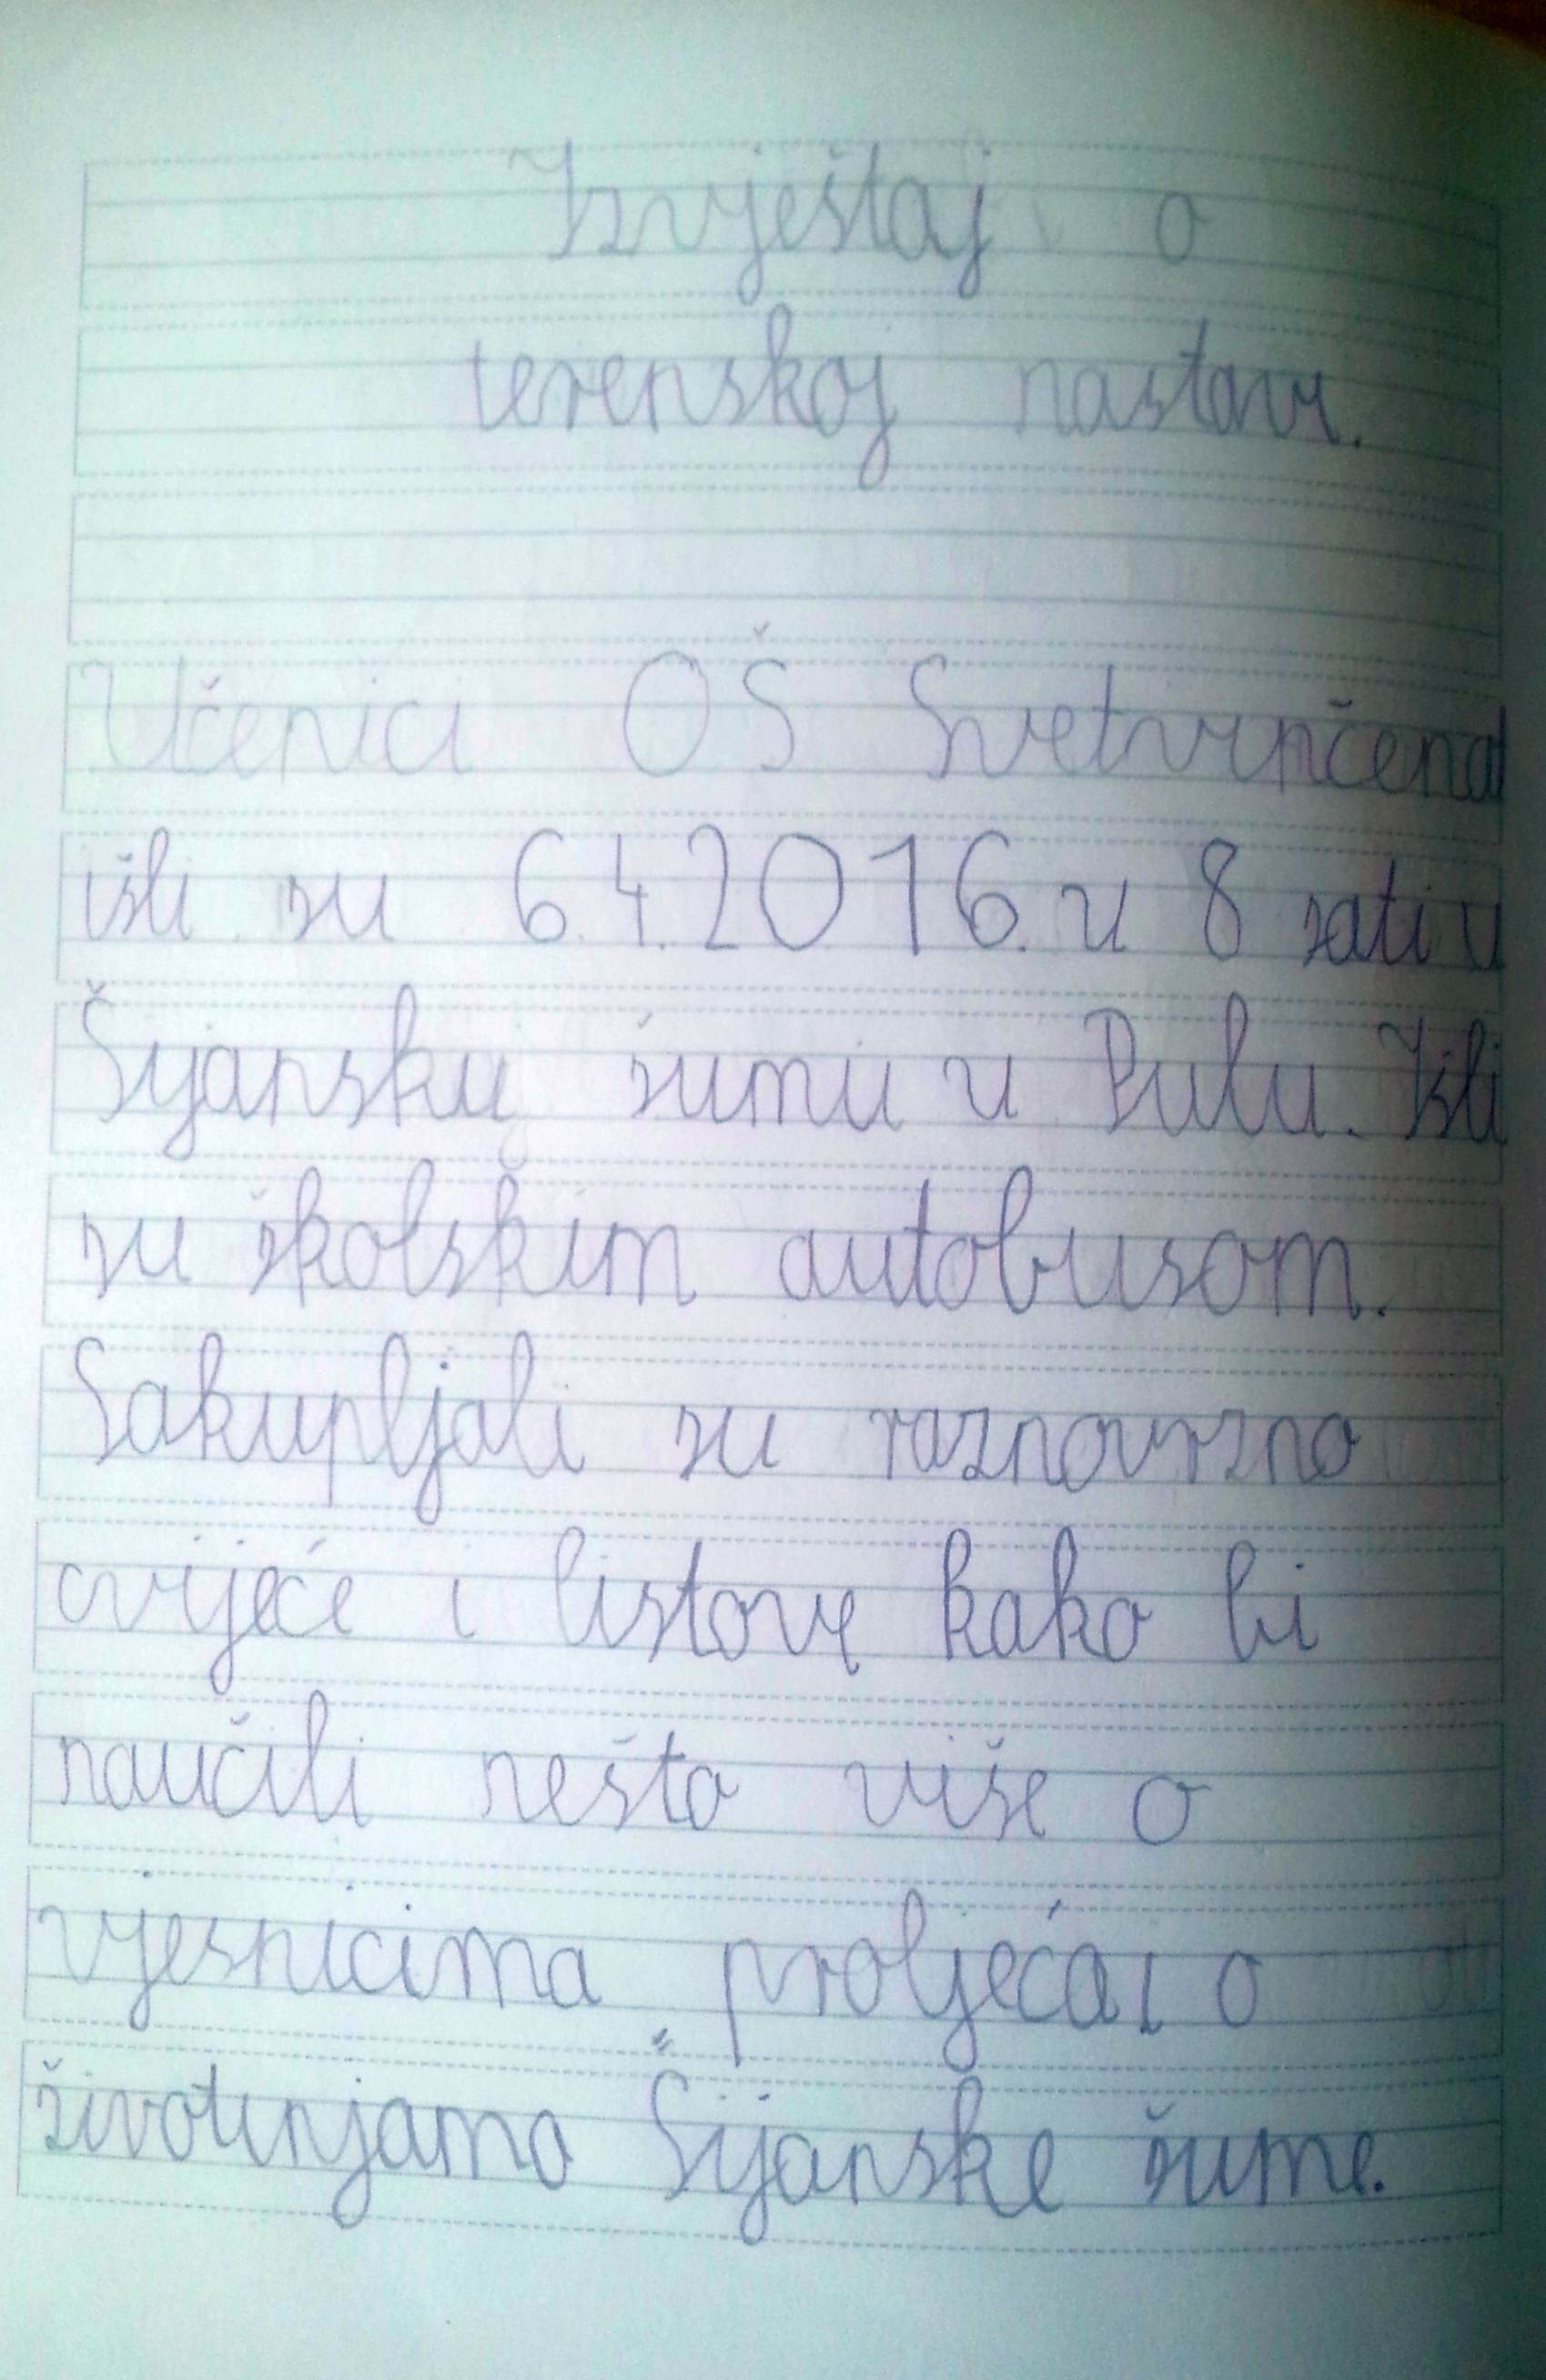 Izvještaj o
terenskoj nastavi.
Učenici OŠ Svetvinčenat
išli su 6.4.2016. u 8 sati u
Šijansku šumu u Pulu. Išli
su školskim autobusom.
Sakupljali su raznovrzno
cvijeće i listove kako bi
naučili nešto više o
vjesnicima proljeća i o
životinjama Šijanske šume.